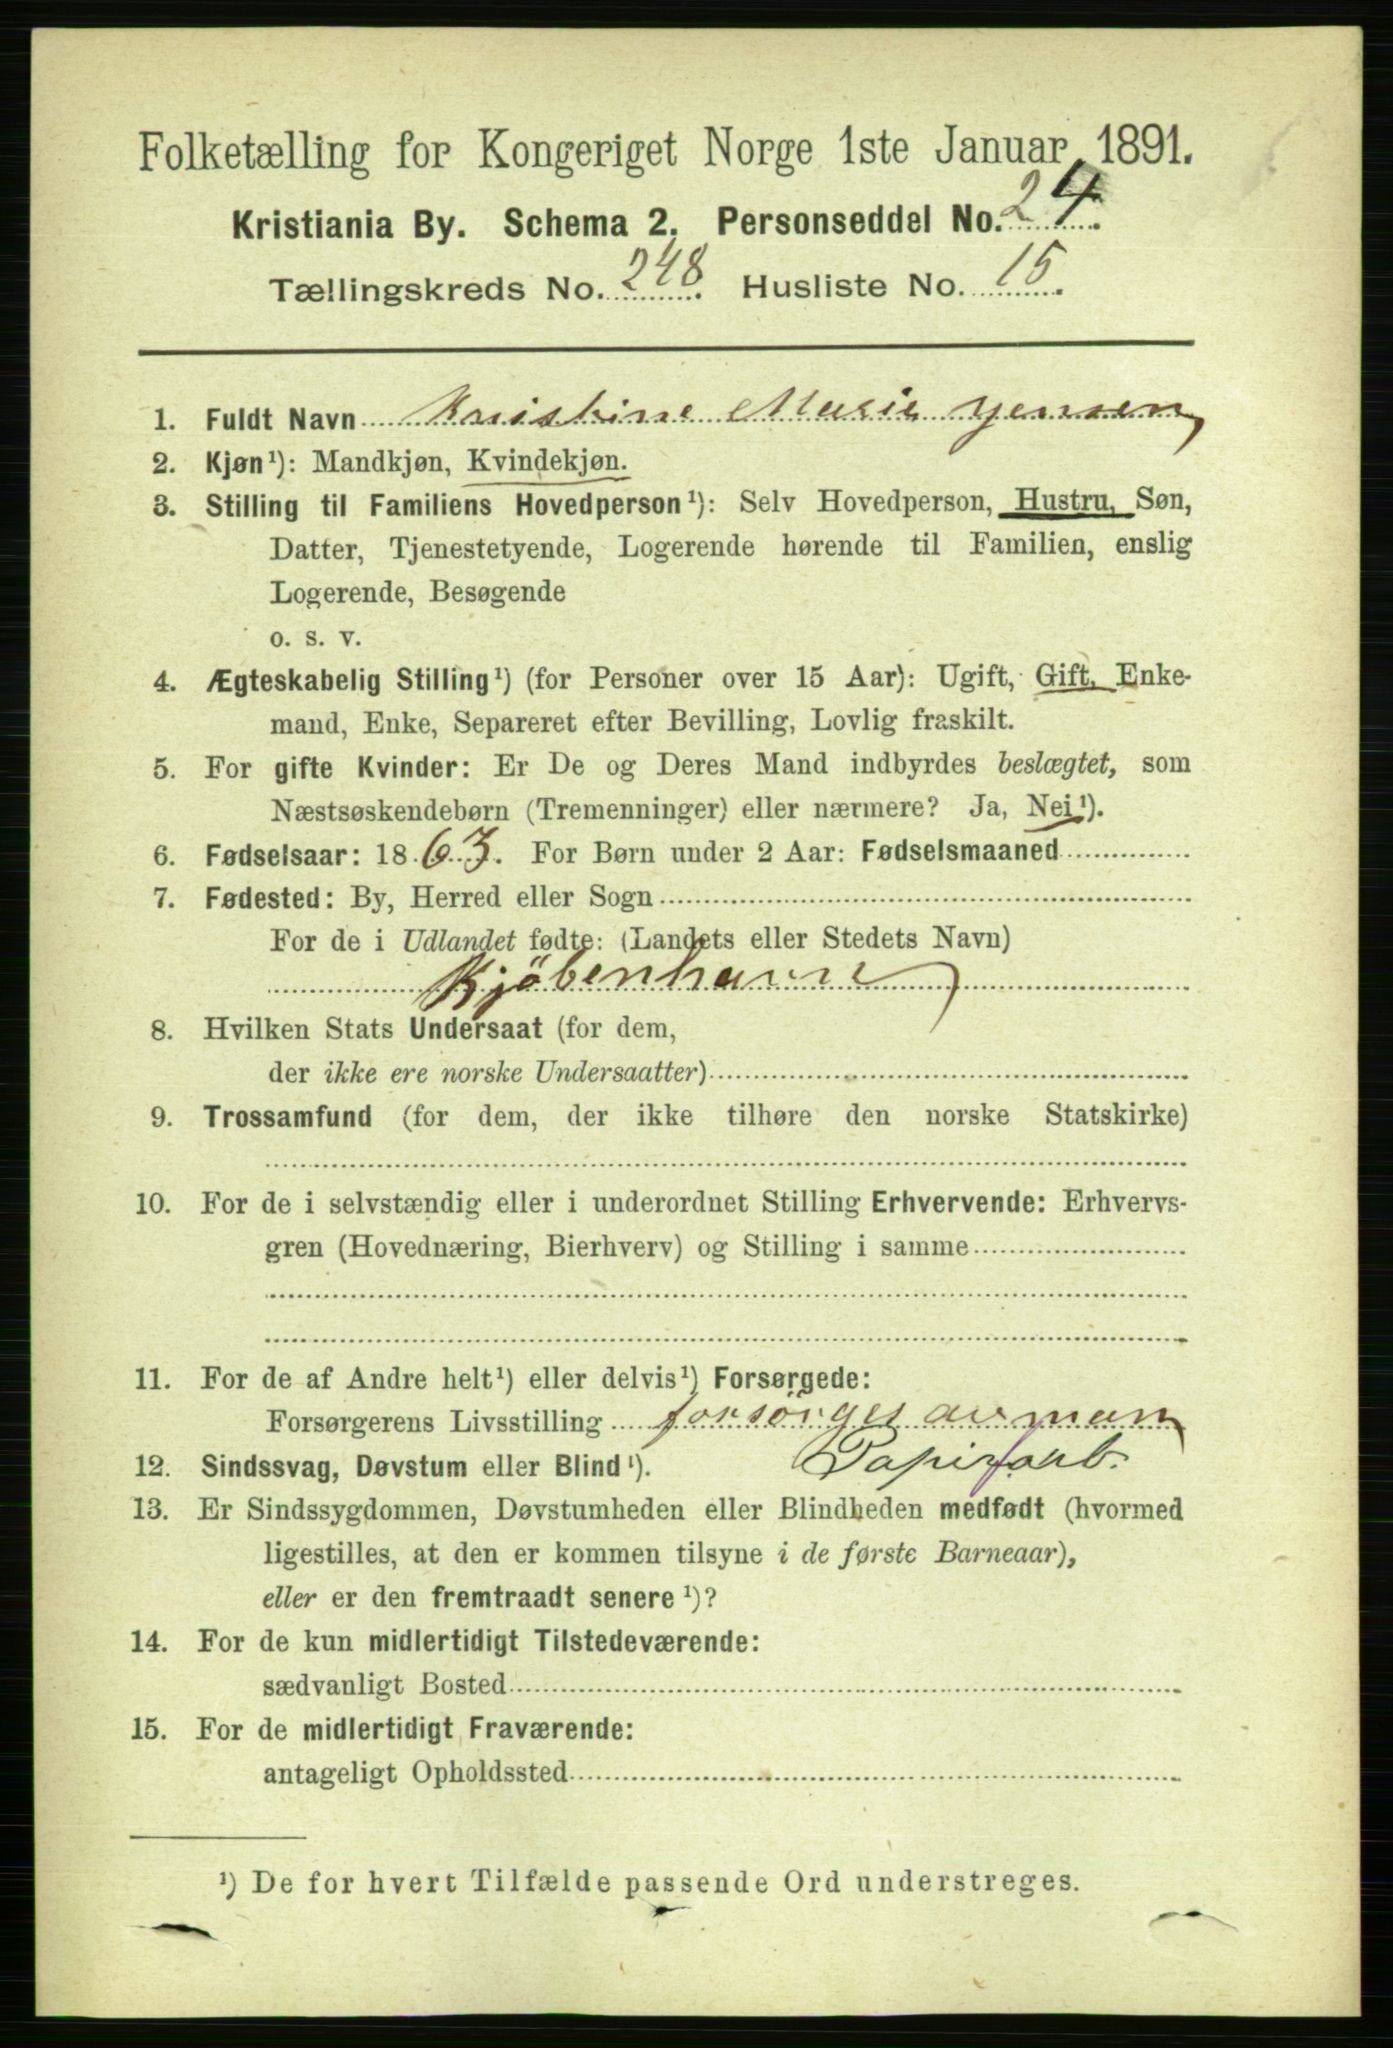 Folketælling for Kongeriget Norge 1ste Januar 1891.
Kristiania By. Schema 2. Personseddel No. 24.
Tællingskreds No. 248. Husliste No. 15.
1. Fuldt Navn Kristine Marie Jensen
2. Kjøn¹): Mandkjøn, Kvindekjøn.
3. Stilling til Familiens Hovedperson¹): Selv Hovedperson, Hustru, Søn,
Datter, Tjenestetyende, Logerende hørende til Familien, enslig
Logerende, Besøgende
o. s. v.
4. Ægteskabelig Stilling¹) (for Personer over 15 Aar): Ugift, Gift, Enke-
mand, Enke, Separeret efter Bevilling, Lovlig fraskilt.
5. For gifte Kvinder: Er De og Deres Mand indbyrdes beslægtet, som
Næstsøskendebørn (Tremenninger) eller nærmere? Ja, Nei¹).
6. Fødselsaar: 1863. For Børn under 2 Aar: Fødselsmaaned
7. Fødested: By, Herred eller Sogn
For de i Udlandet fødte: (Landets eller Stedets Navn)
Kjöbenhavn
8. Hvilken Stats Undersaat (for dem,
der ikke ere norske Undersaatter)
9. Trossamfund (for dem, der ikke tilhøre den norske Statskirke)
10. For de i selvstændig eller i underordnet Stilling Erhvervende: Erhvervs-
gren (Hovednæring, Bierhverv) og Stilling i samme
11. For de af Andre helt¹) eller delvis¹) Forsørgede:
Forsørgerens Livsstilling forsörges av man
12. Sindssvag, Døvstum eller Blind¹). Papirfarb.
13. Er Sindssygdommen, Døvstumheden eller Blindheden medfødt (hvormed
ligestilles, at den er kommen tilsyne i de første Barneaar),
eller er den fremtraadt senere¹)?
14. For de kun midlertidigt Tilstedeværende:
sædvanligt Bosted
15. For de midlertidigt Fraværende:
antageligt Opholdssted
¹) De for hvert Tilfælde passende Ord understreges.